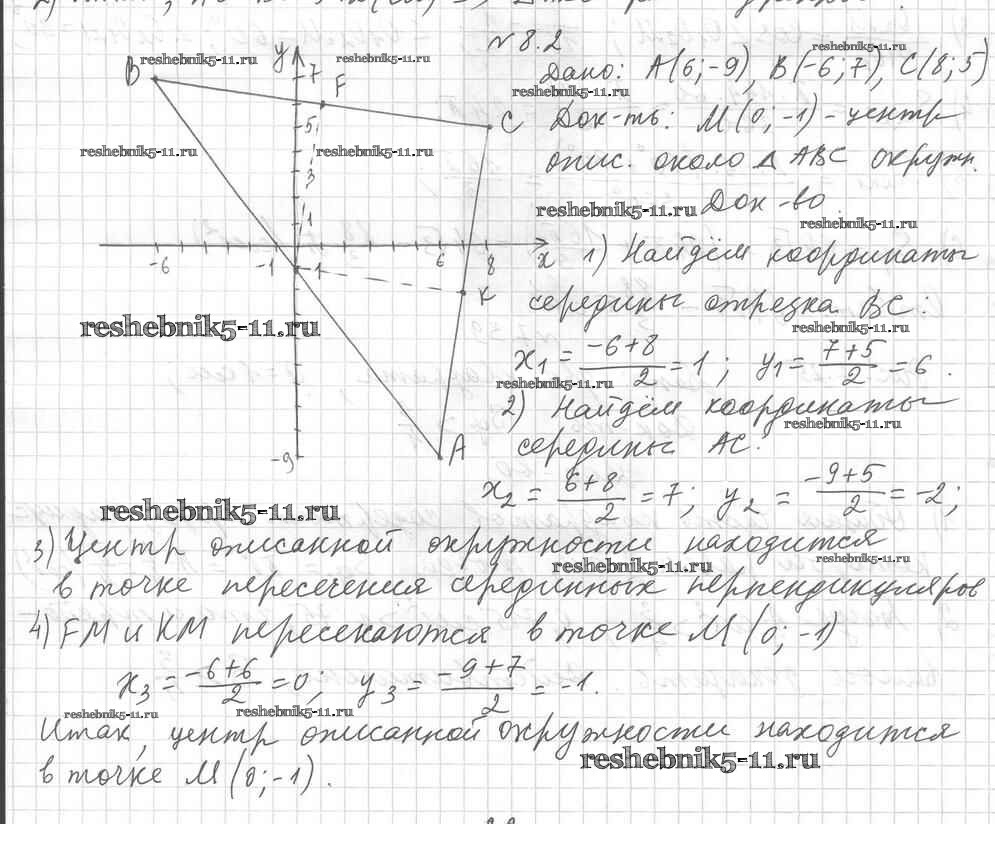 № 8.2
Дано: A(6;-9), B(-6;7), C(8;5)
Док-ть: M(0;-1) - центр
опис. около Δ ABC окружн.
Док-во
1) Найдём координаты
середины отрезка BC:
x1 = (-6+8)/2 = 1; y1 = (7+5)/2 = 6.
2) Найдём координаты
середины AC:
x2 = (6+8)/2 = 7; y2 = (-9+5)/2 = -2;
3) Центр описанной окружности находится
в точке пересечения серединных перпендикуляров
4) FM и KM пересекаются в точке M(0;-1)
x3 = (-6+6)/2 = 0; y3 = (-9+7)/2 = -1.
Итак, центр описанной окружности находится
в точке M(0;-1).
y
B
7
F
5
C
3
1
-6
-1
-1
6
8
x
K
-9
A
reshebnik5-11.ru
reshebnik5-11.ru
reshebnik5-11.ru
reshebnik5-11.ru
reshebnik5-11.ru
reshebnik5-11.ru
reshebnik5-11.ru
reshebnik5-11.ru
reshebnik5-11.ru
reshebnik5-11.ru
reshebnik5-11.ru
reshebnik5-11.ru
reshebnik5-11.ru
reshebnik5-11.ru
reshebnik5-11.ru
reshebnik5-11.ru
reshebnik5-11.ru
reshebnik5-11.ru